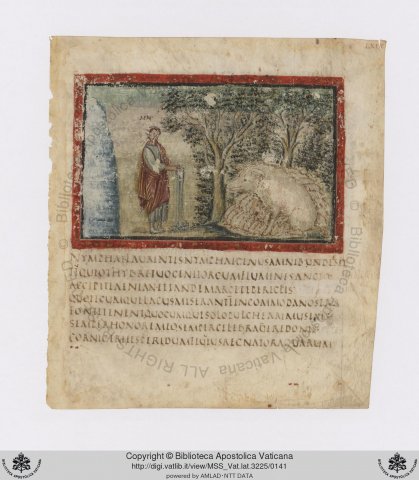 NYMPHAELAURENTESNYMPHAEGENUSAMNIBUSUNDEEST
TUQUEOTHYBRITUOGENITORCUMFLUMINESANCTO
ACCIPITEAENEANETTANDEMARCETEPERICLIS
QUOTECUMQUELACUSMISERANTEMINCOMMODANOSTRA
FONTETENETQUOCUMQUESOLOPULCHERRIMUSEXIS
SEMPERHONOREMEOSEMPERCELEBRABEREDONIS
CORNIGERHESPERIDUMFLUUIUSREGNATORAQUARUM
Copyright © Biblioteca Apostolica Vaticana
http://digi.vatlib.it/view/MSS_Vat.lat.3225/0141
powered by AMLAD-NTT DATA